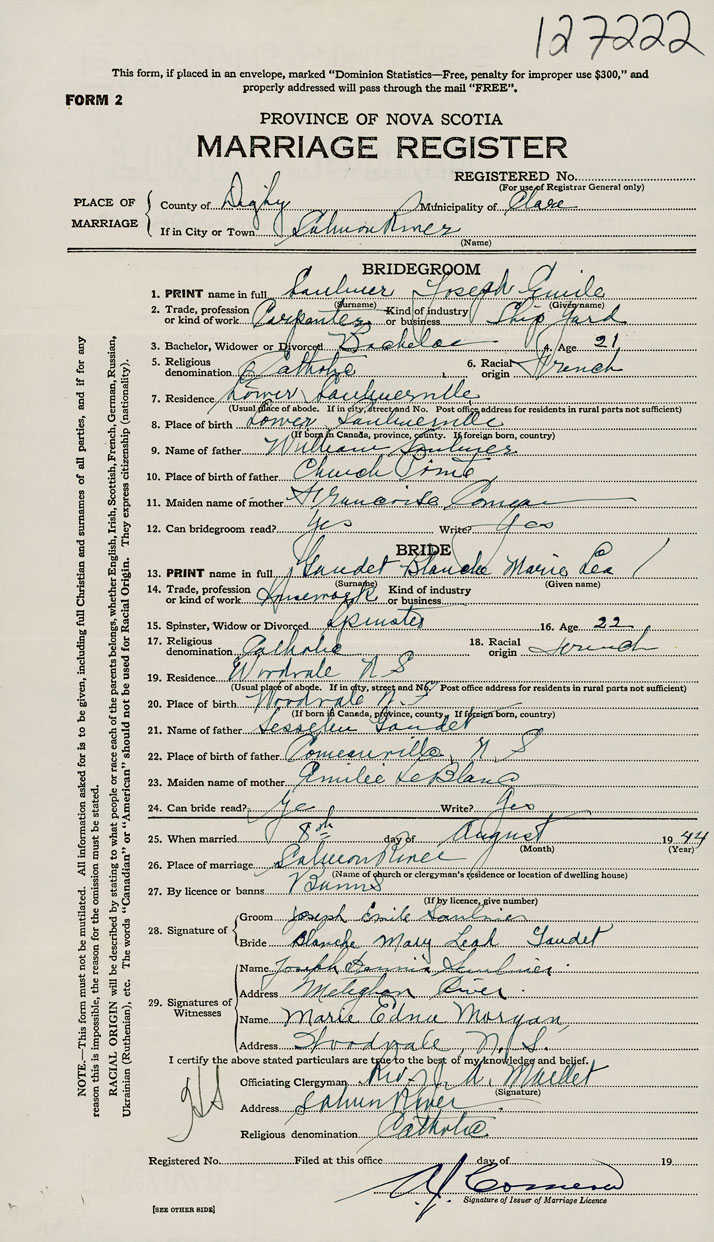 127222
This form, if placed in an envelope, marked "Dominion Statistics—Free, penalty for improper use $300," and
properly addressed will pass through the mail "FREE".
FORM 2
PROVINCE OF NOVA SCOTIA
MARRIAGE REGISTER
REGISTERED No.
(For use of Registrar General only)
PLACE OF MARRIAGE
County of Digby Municipality of Clare
If in City or Town Salmon River
(Name)
BRIDEGROOM
1. PRINT name in full Saulnier Joseph Emile
(Surname) (Given name)
2. Trade, profession or kind of work Carpenter Kind of industry or business Ship Yard
3. Bachelor, Widower or Divorced Bachelor 4. Age 21
5. Religious denomination Catholic 6. Racial origin French
7. Residence Lower Saulnierville
(Usual place of abode. If in city, street and No. Post office address for residents in rural parts not sufficient)
8. Place of birth Lower Saulnierville
(If born in Canada, province, county. If foreign born, country)
9. Name of father William Saulnier
10. Place of birth of father Church Point
11. Maiden name of mother Francoise
12. Can bridegroom read? Yes Write? Yes
BRIDE
13. PRINT name in full Gaudet Blanche Marie Lea
(Surname) (Given name)
14. Trade, profession or kind of work Housework Kind of industry or business
15. Spinster, Widow or Divorced Spinster 16. Age 22
17. Religious denomination Catholic 18. Racial origin French
19. Residence Woodvale N S
(Usual place of abode. If in city, street and No. Post office address for residents in rural parts not sufficient)
20. Place of birth Woodvale N.S
(If born in Canada, province, county. If foreign born, country)
21. Name of father Gaudet
22. Place of birth of father Comeauville, N S
23. Maiden name of mother Emilie LeBlanc
24. Can bride read? Ye Write? Yes
25. When married 8th day of August 1944
(Month) (Year)
26. Place of marriage Salmon River
(Name of church or clergyman's residence or location of dwelling house)
27. By licence or banns Banns
(If by licence, give number)
28. Signature of
Groom Joseph Emile Saulnier
Bride Blanche Mary Leah Gaudet
29. Signatures of Witnesses
Name Joseph Saulnier
Address Meteghan River
Name Marie Edna Morgan,
Address Woodvale, N. S.
I certify the above stated particulars are true to the best of my knowledge and belief.
Officiating Clergyman Rev. J. A. Maillet
(Signature)
Address Salmon River
Religious denomination Catholic
Registered No. Filed at this office day of 19
A. J. Comeau
Signature of Issuer of Marriage Licence
[SEE OTHER SIDE]
NOTE.—This form must not be mutilated. All information asked for is to be given, including full Christian and surnames of all parties, and if for any
reason this is impossible, the reason for the omission must be stated.
RACIAL ORIGIN will be described by stating to what people or race each of the parents belongs, whether English, Irish, Scottish, French, German, Russian,
Ukrainian (Ruthenian), etc. The words "Canadian" or "American" should not be used for Racial Origin. They express citizenship (nationality).